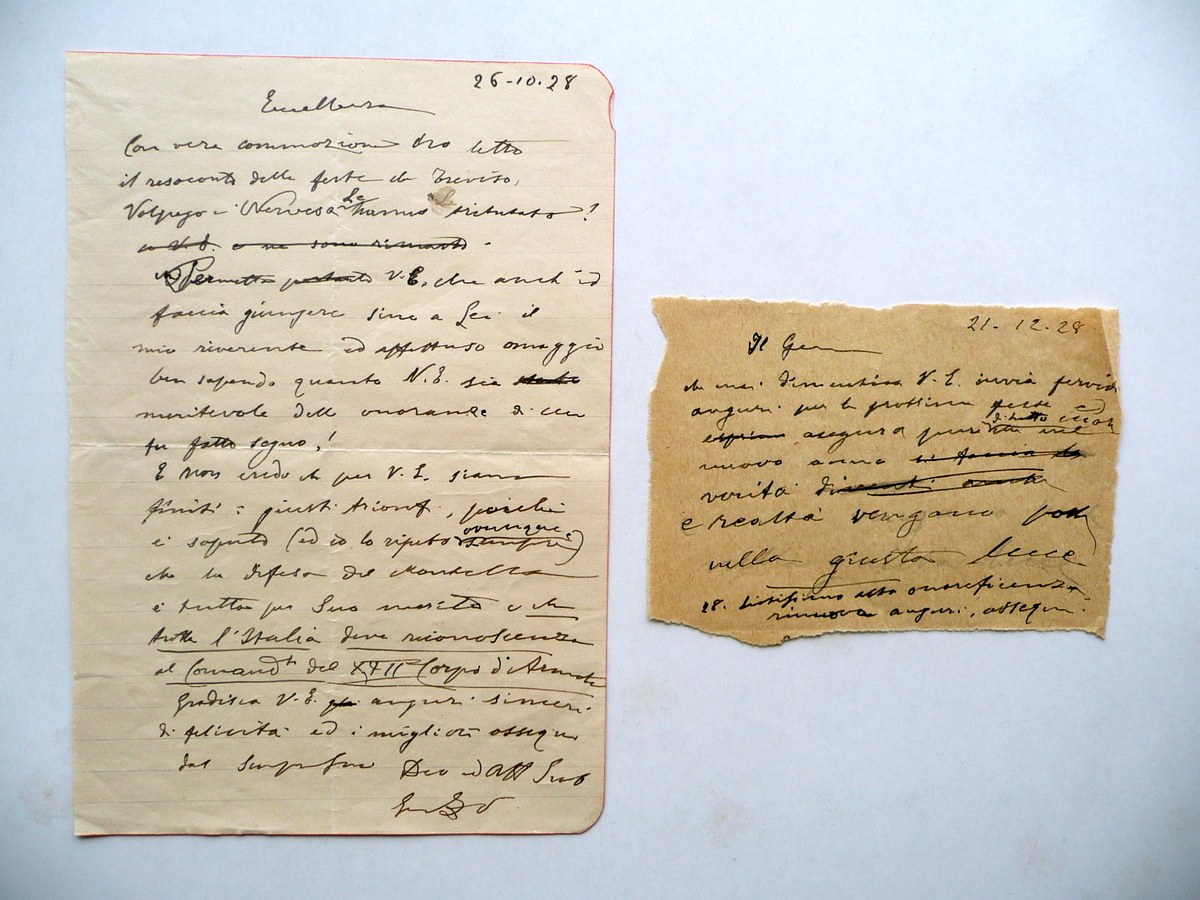 26-10-28
Eccellenza
Con vera commozione ho letto
il resoconto delle feste che Treviso,
Volpago e Nervesa Le hanno tributato!
a V.E. e ne sono rimasto
Permetta pertanto V.E. che anch'io
faccia giungere sino a Lei il
mio riverente ed affettuoso omaggio
ben sapendo quanto V.E. sia stato
meritevole delle onoranze di cui
fu fatto segno!
E non credo che per V.E. siano
finiti i giusti trionfi, poiché
è saputo (ed io lo ripeto ovunque sempre)
che la difesa del Montello
è tutto per Suo merito e che
tutta l'Italia deve riconoscenza
al Comand.te del XXII Corpo d'Armata
Gradisca V.E. auguri sinceri
di felicità ed i migliori ossequi
dal Suo Dev ed Aff
21-12-28
Il Gen
che mai dimentica V.E. invia fervidi
auguri per le prossime feste ed
esprime
nuovo anno si faccia la
verità
e realtà vengano
nella giusta luce
28. alta onorificenza
rinnova auguri, ossequi.